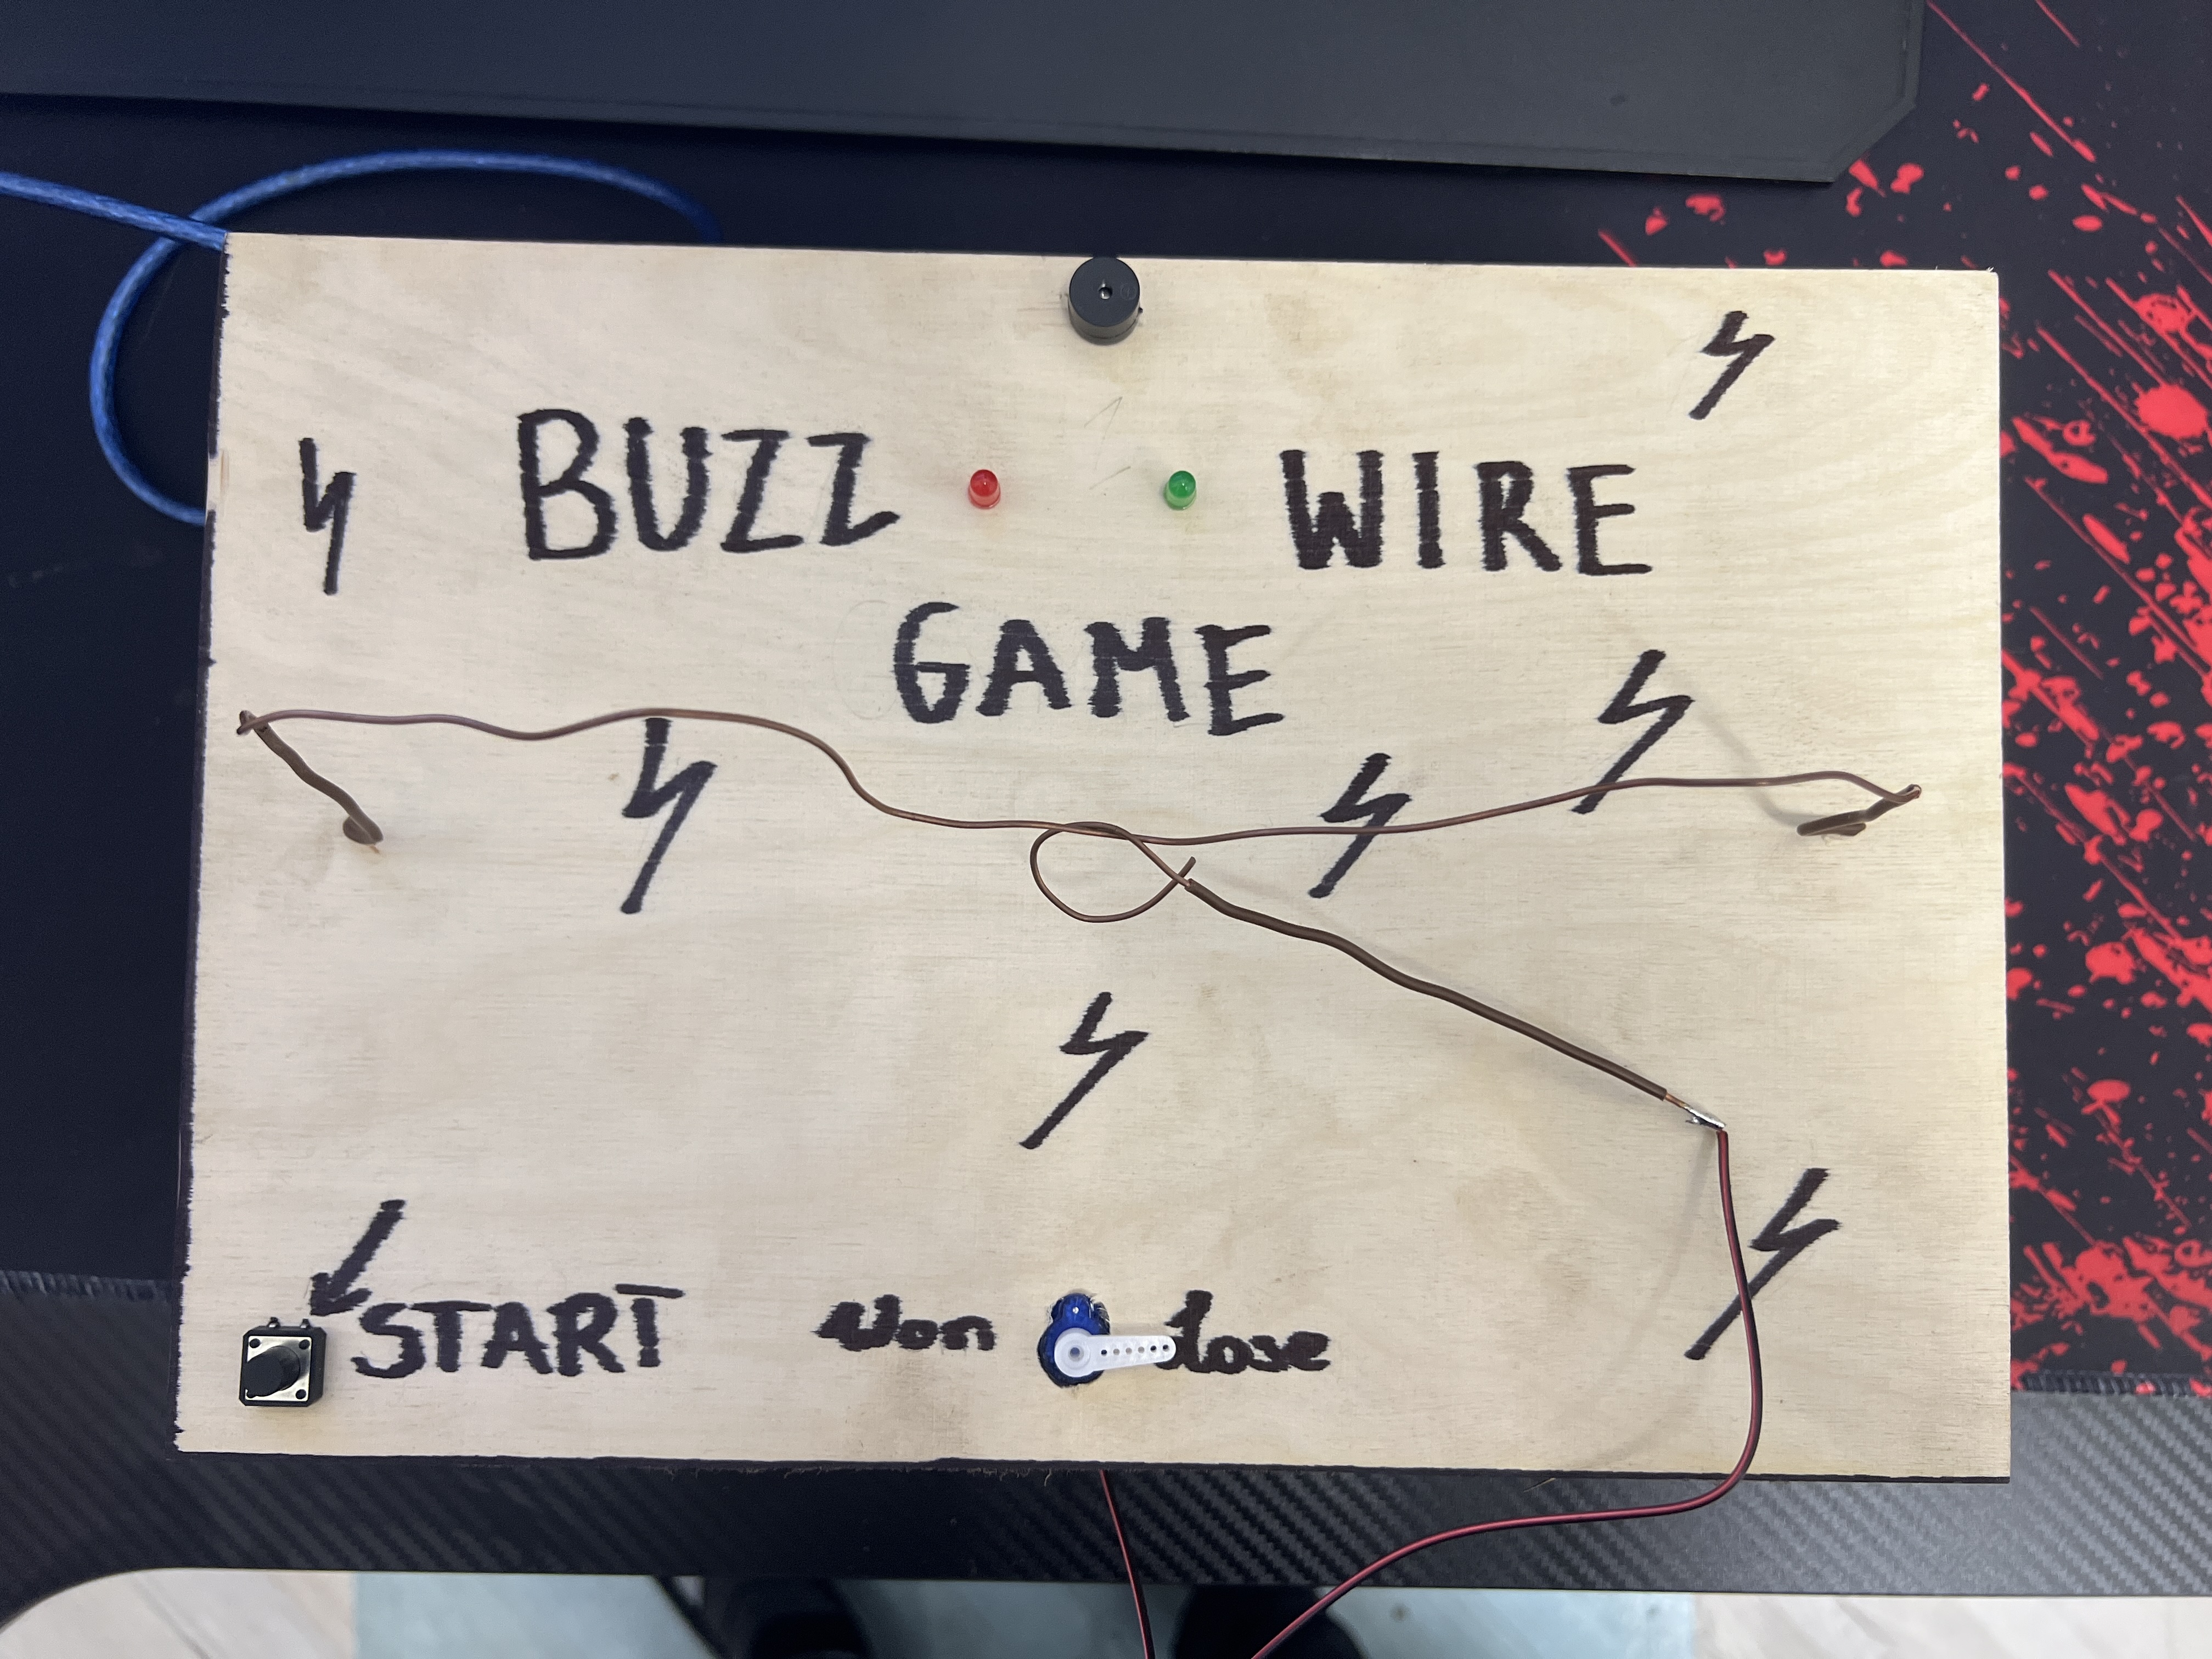 BUZZ WIRE
GAME
START won lose